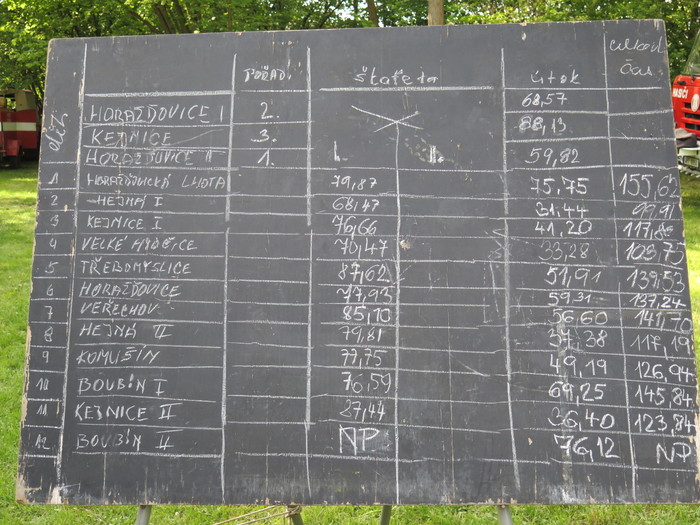 POŘAD. štafeta útok celkový čas
HORAŽĎOVICE I 2. 68,57
KEJNICE 3. 88,13
HORAŽĎOVICE II 1. I. II. 59,82
1 HORAŽĎOVICKÁ LHOTA 79,87 75,75 155,62
2 HEJNÁ I 68,47 31,44 99,91
3 KEJNICE I 76,66 41,20 117,86
4 VELKÉ HYDČICE 70,47 33,28 103,75
5 TŘEBOMYSLICE 87,62 51,91 139,53
6 HORAŽĎOVICE 77,93 59,31 137,24
7 VEŘECHOV 85,10 56,60 141,70
8 HEJNÁ II 79,81 37,38 117,19
9 KOMUŠÍN 77,75 49,19 126,94
10 BOUBÍN I 76,59 69,25 145,84
11 KEJNICE II 27,44 36,40 123,84
12 BOUBÍN II NP 76,12 NP
HASIČI